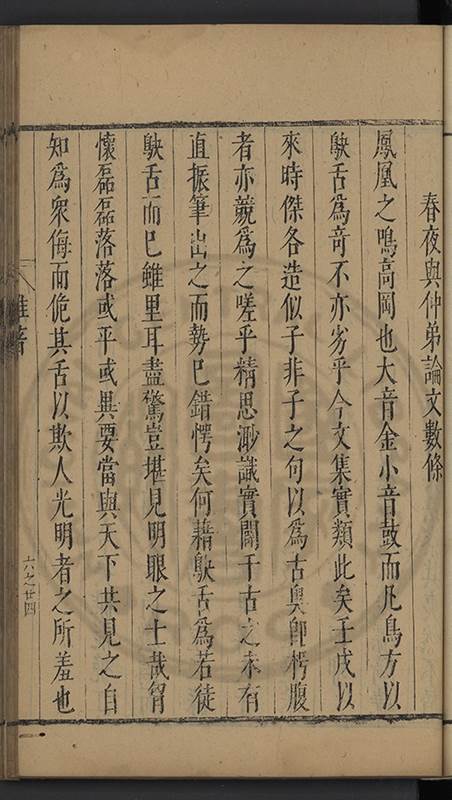 春夜與仲弟論文數條
鳳凰之鳴高岡也大音金小音鼓而凡鳥方以
鴃舌爲奇不亦劣乎今文集實類此矣壬戌以
來時傑各造似子非子之句以爲古奥卽枵腹
者亦競爲之嗟乎精思渺識實闢千古之未有
直振筆出之而勢已錯愕矣何藉鴃舌爲若徒
鴃舌而已雖里耳盡驚豈堪見明眼之士哉胷
懷磊磊落落或平或異要當與天下共見之自
知爲衆侮而佹其舌以欺人光明者之所羞也
雜著
六之廿四